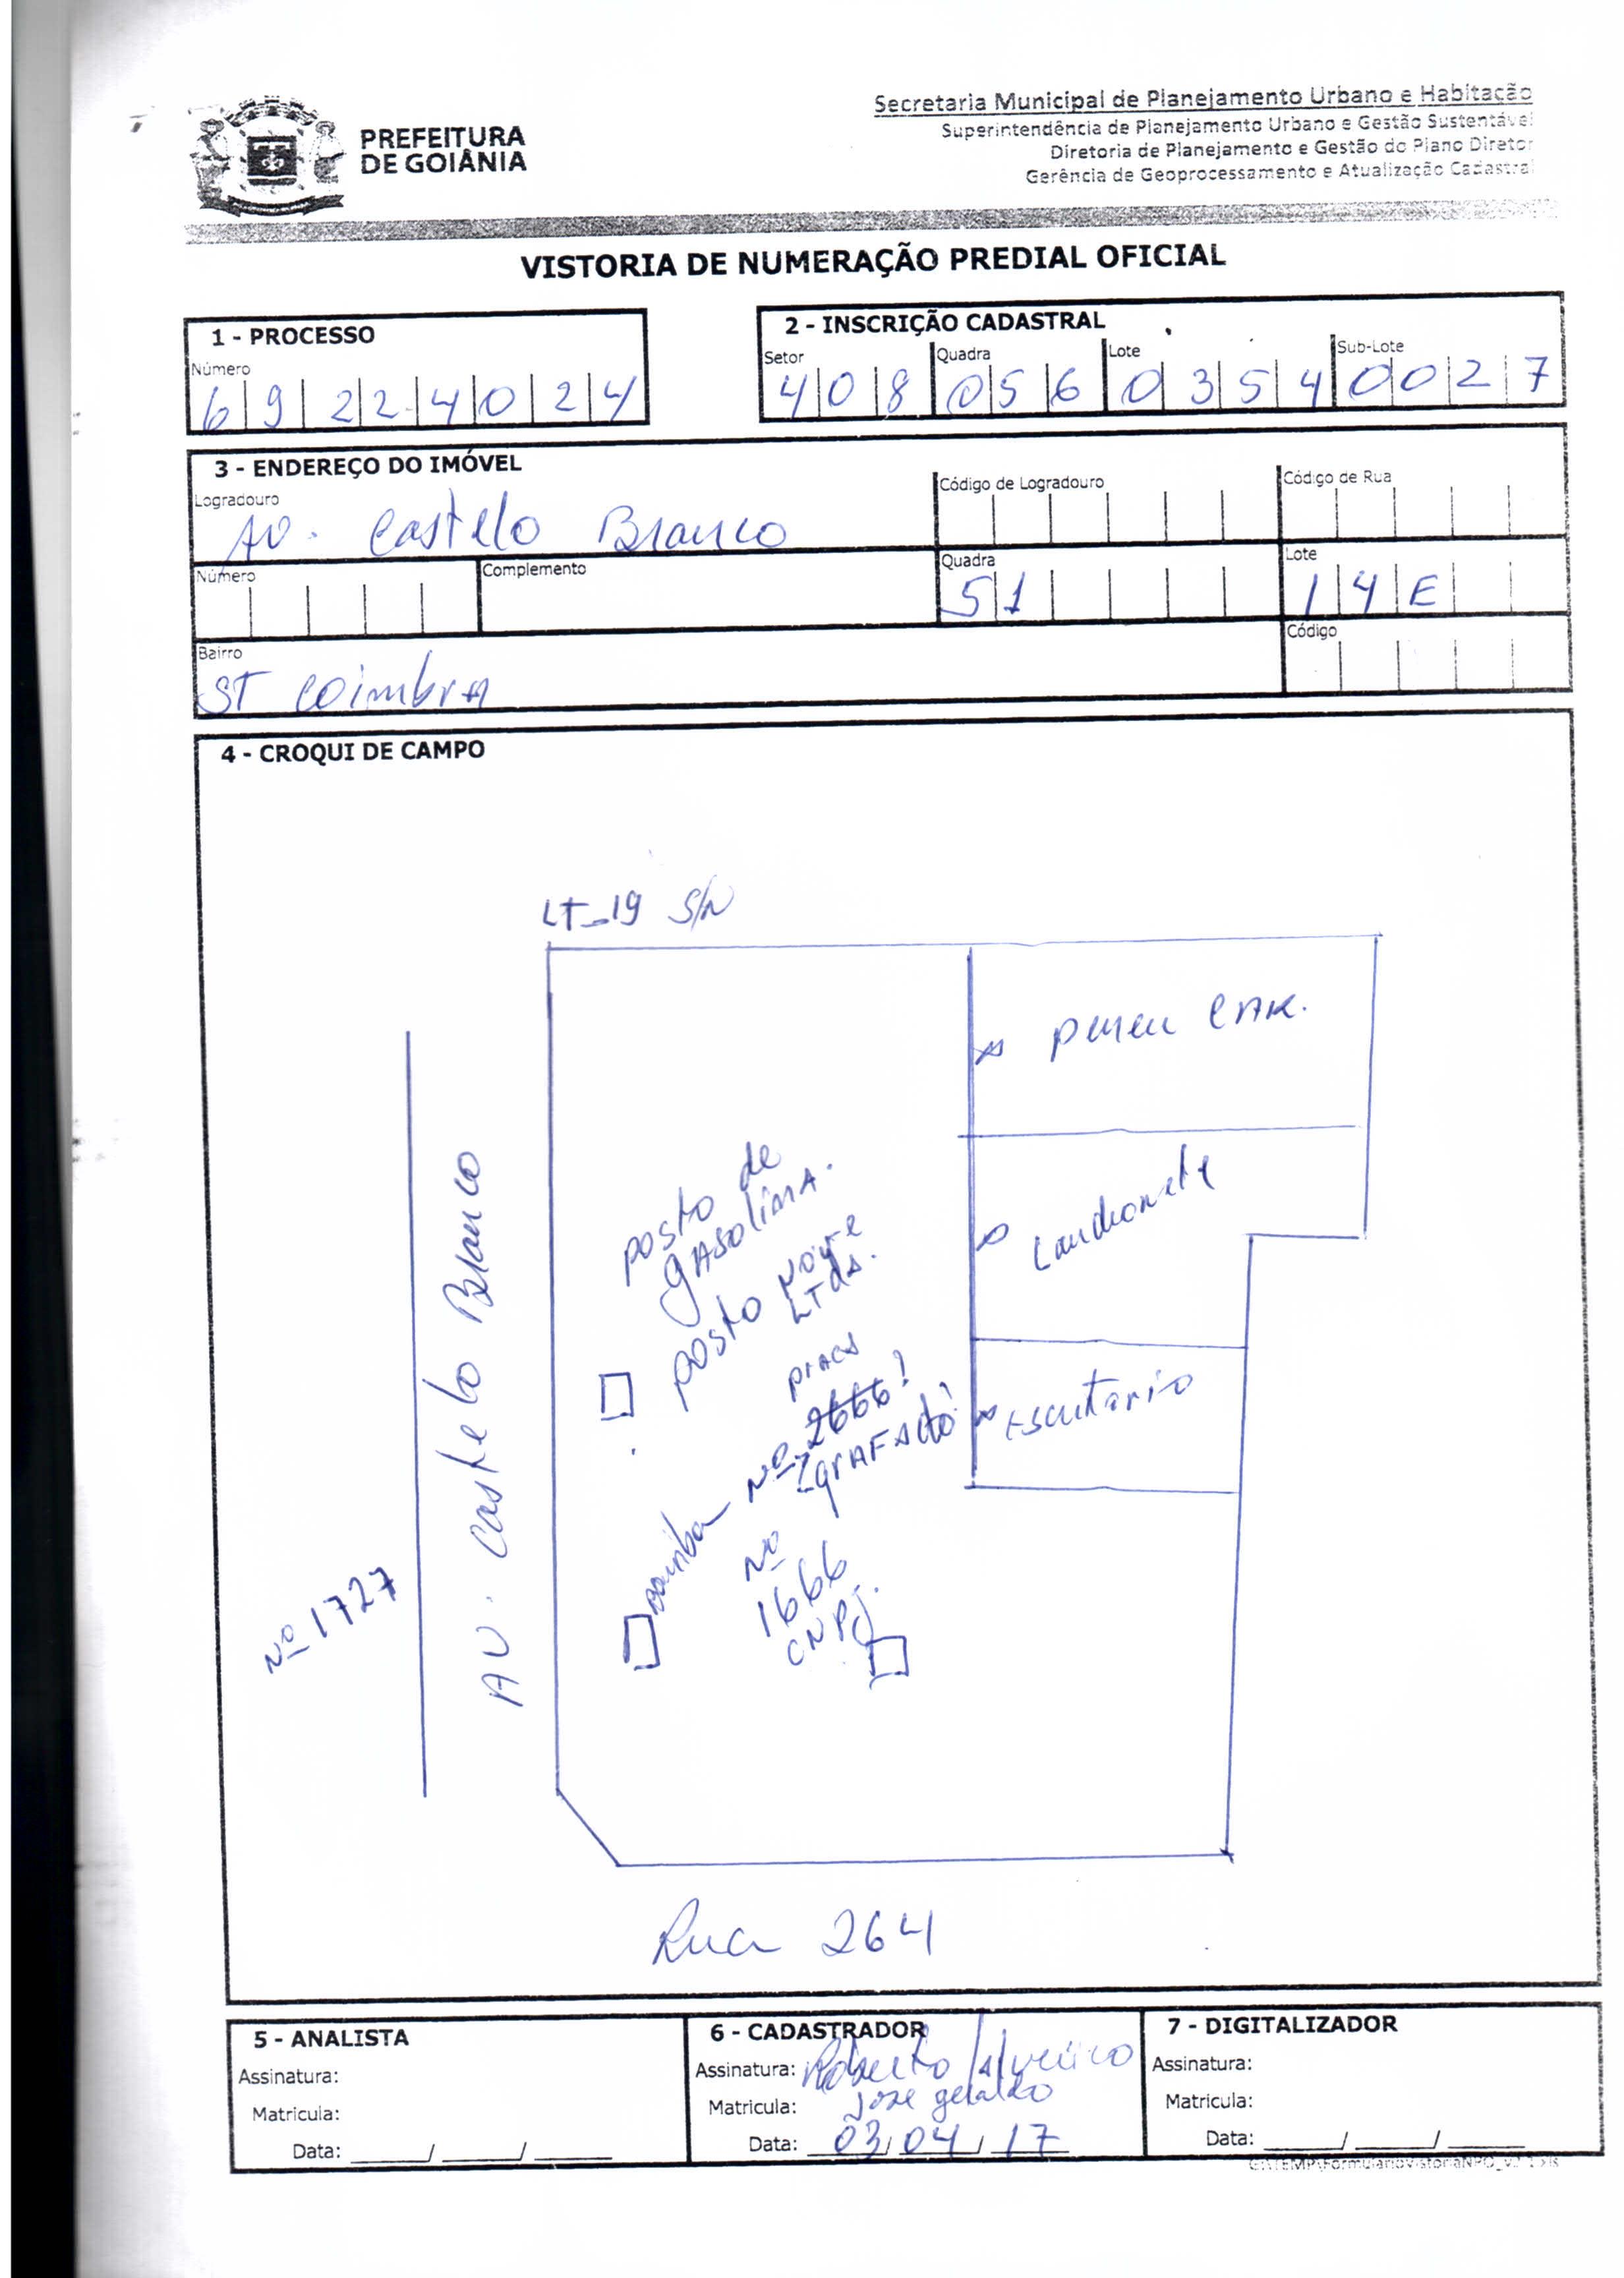 PREFEITURA
DE GOIÂNIA
Secretaria Municipal de Planejamento Urbano e Habitação
Superintendência de Planejamento Urbano e Gestão Sustentável
Diretoria de Planejamento e Gestão do Plano Diretor
Gerência de Geoprocessamento e Atualização Cadastral
VISTORIA DE NUMERAÇÃO PREDIAL OFICIAL
1 - PROCESSO
Número
69224024
2 - INSCRIÇÃO CADASTRAL
Setor Quadra Lote Sub-Lote
408 056 0354 0027
3 - ENDEREÇO DO IMÓVEL
Logradouro Código de Logradouro Código de Rua
AV. Castelo Branco
Número Complemento Quadra Lote
51 14E
Bairro Código
ST Coimbra
4 - CROQUI DE CAMPO
LT-19 S/N
pneu CAR.
Lanchonete
Escritorio
posto de
gASoliNA.
posto
LTdA.
Nº 2666!
Nº
1666
CNPJ.
AV. Castelo Branco
Nº 1727
Rua 264
5 - ANALISTA
Assinatura:
Matricula:
Data: ____/____/____
6 - CADASTRADOR
Assinatura: Roberto
Matricula: José geraldo
Data: 03/04/17
7 - DIGITALIZADOR
Assinatura:
Matricula:
Data: ____/____/____
G:\TEMP\FormularioVistoriaNPO_v2.1.xls